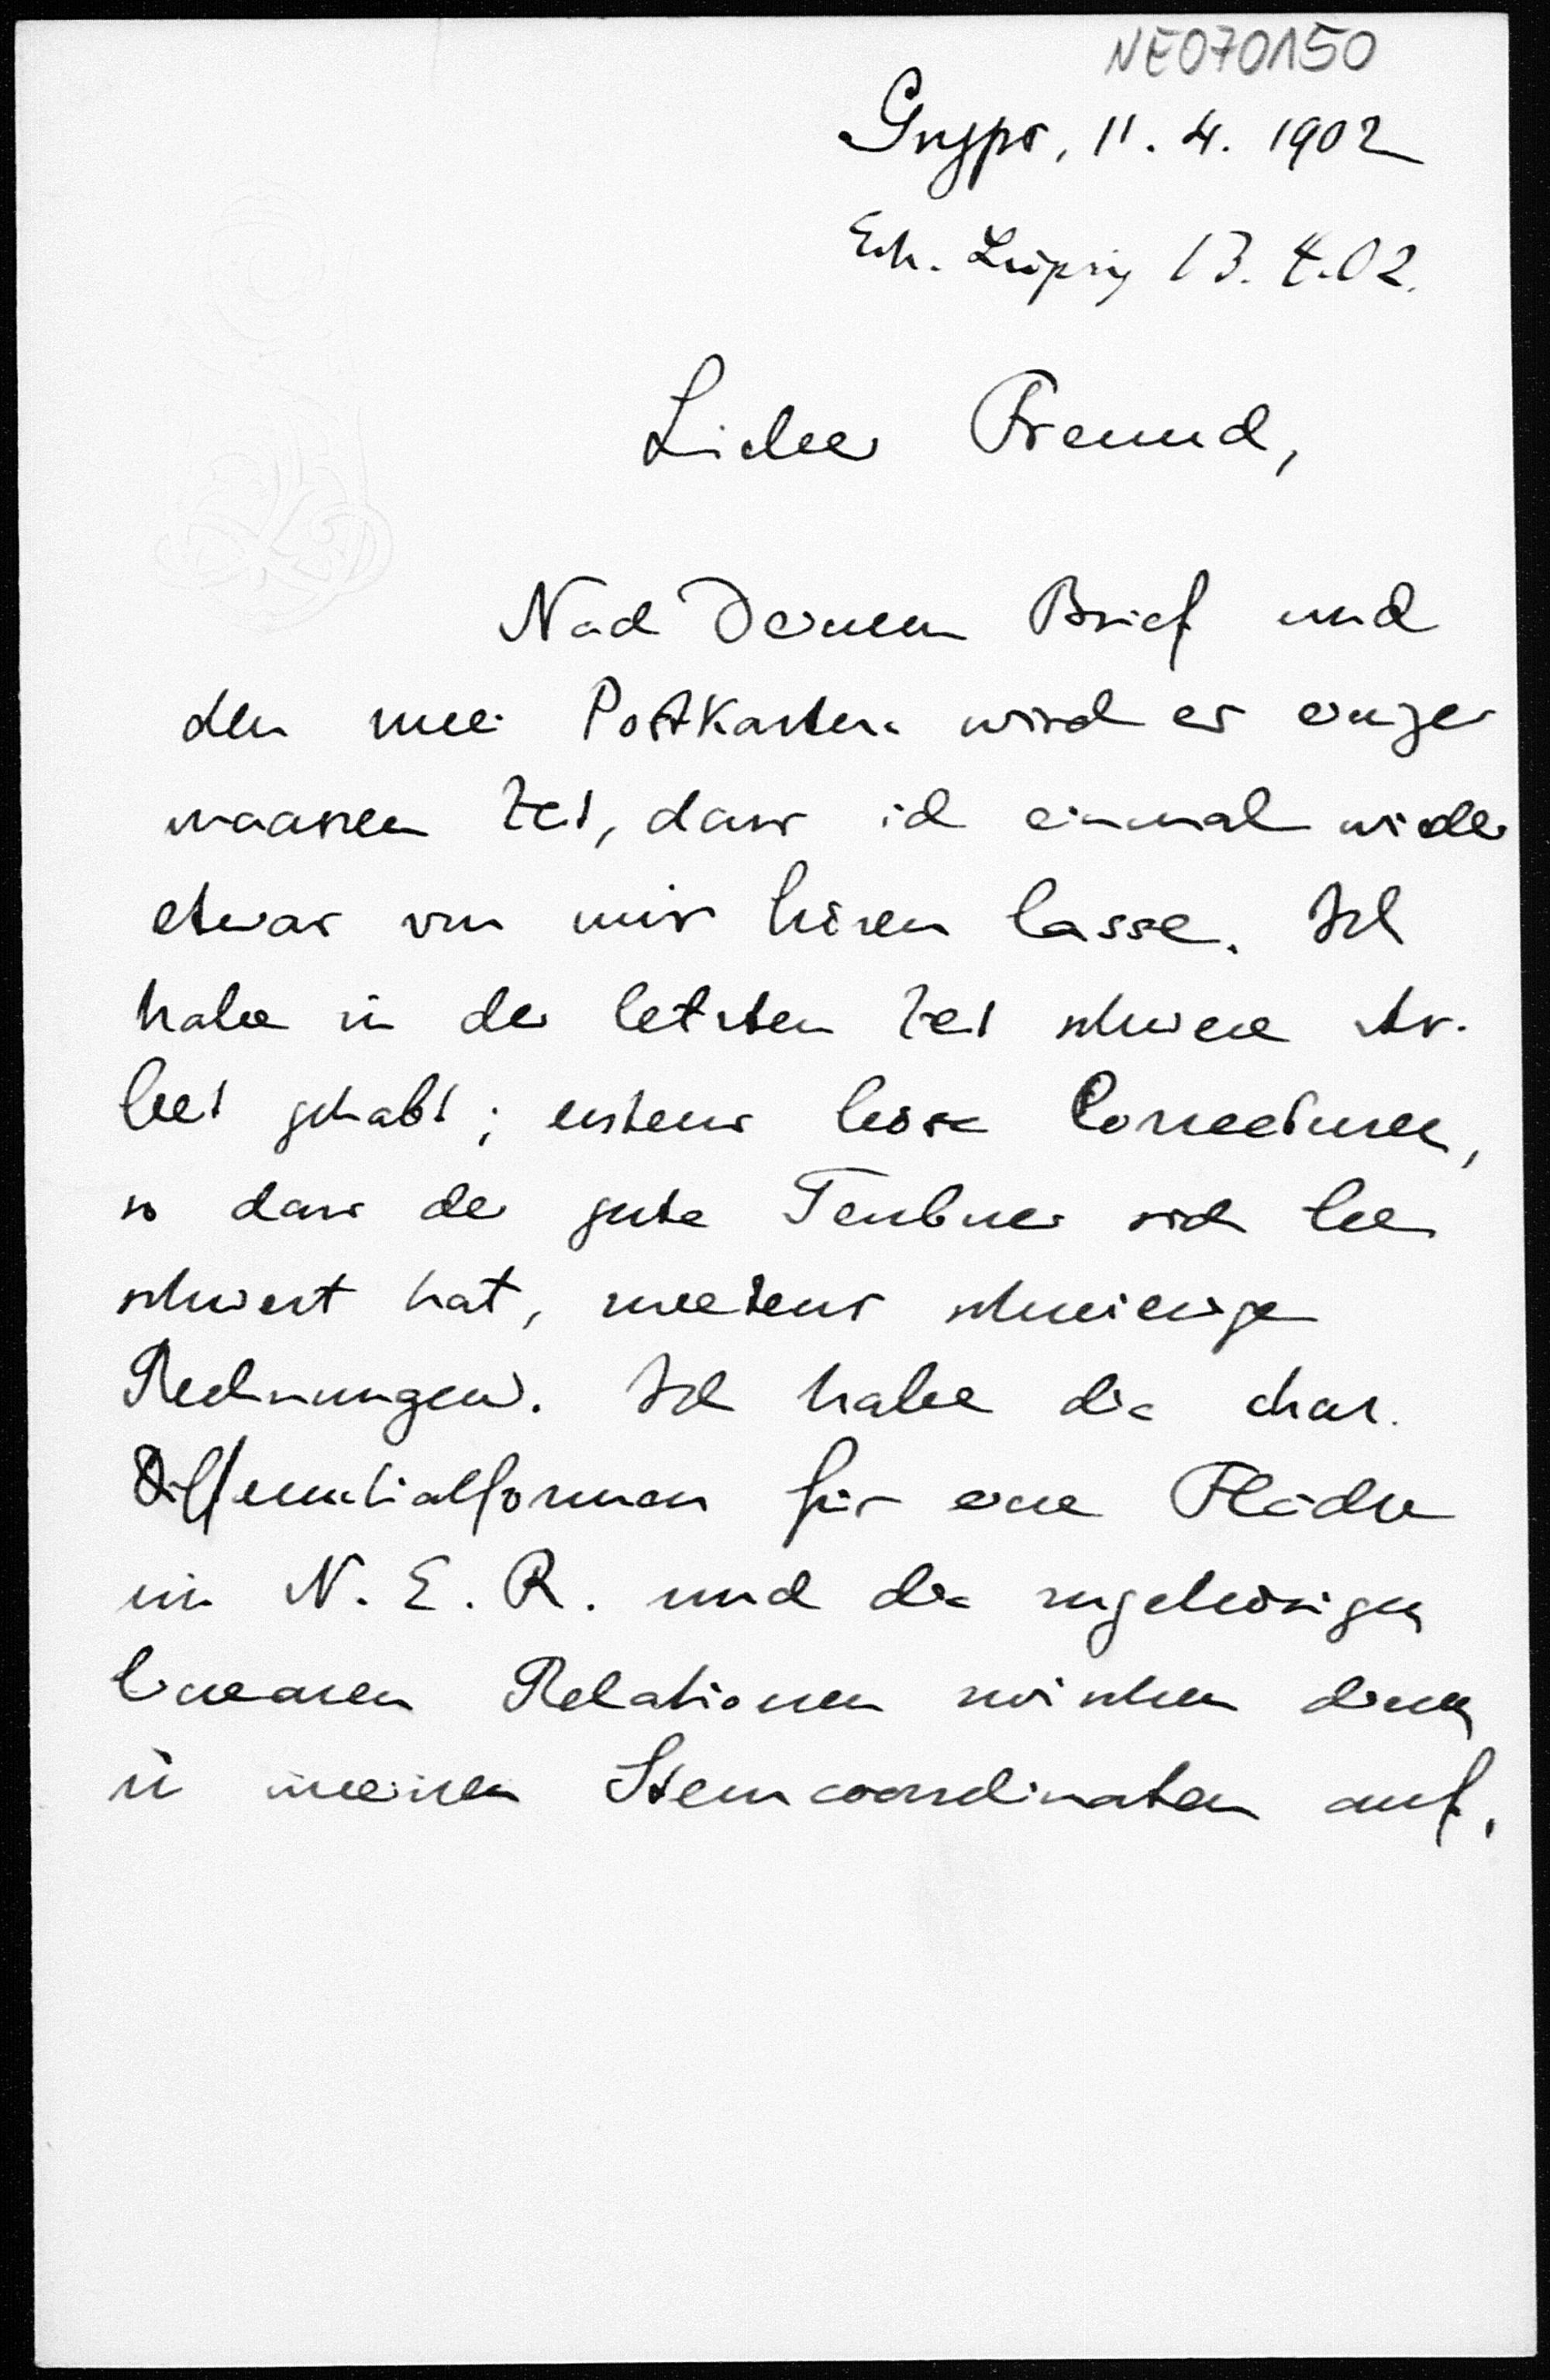 NE070150
Gryps, 11. 4. 1902
Erh. Leipzig 13. 4. 02.
Lieber Freund,
Nach Deinem Brief und
den zwei Postkarten wird es einiger
maassen Zeit, dass ich einmal wieder
etwas von mir hören lasse. Ich
habe in der letzten Zeit schwere Ar-
beit gehabt; erstens böse Correcturen,
so dass der gute Teubner sich be
schwert hat, zweitens schwierige
Rechnungen. Ich habe die char.
Differentialformen für eine Fläche
im N. E. R. und die zugehörigen
linearen Relationen zwischen denen
in meinen Sterncoordinaten auf.